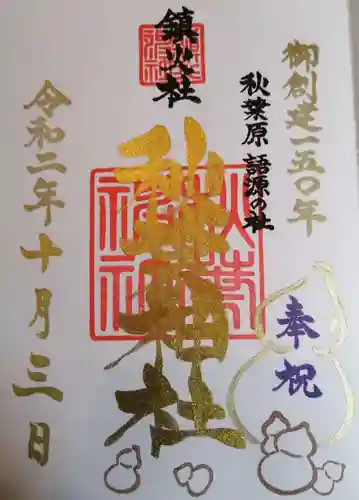 御創建一五〇年
奉祝
秋葉原 語源の社
鎮火社
秋葉神社
令和二年十月三日